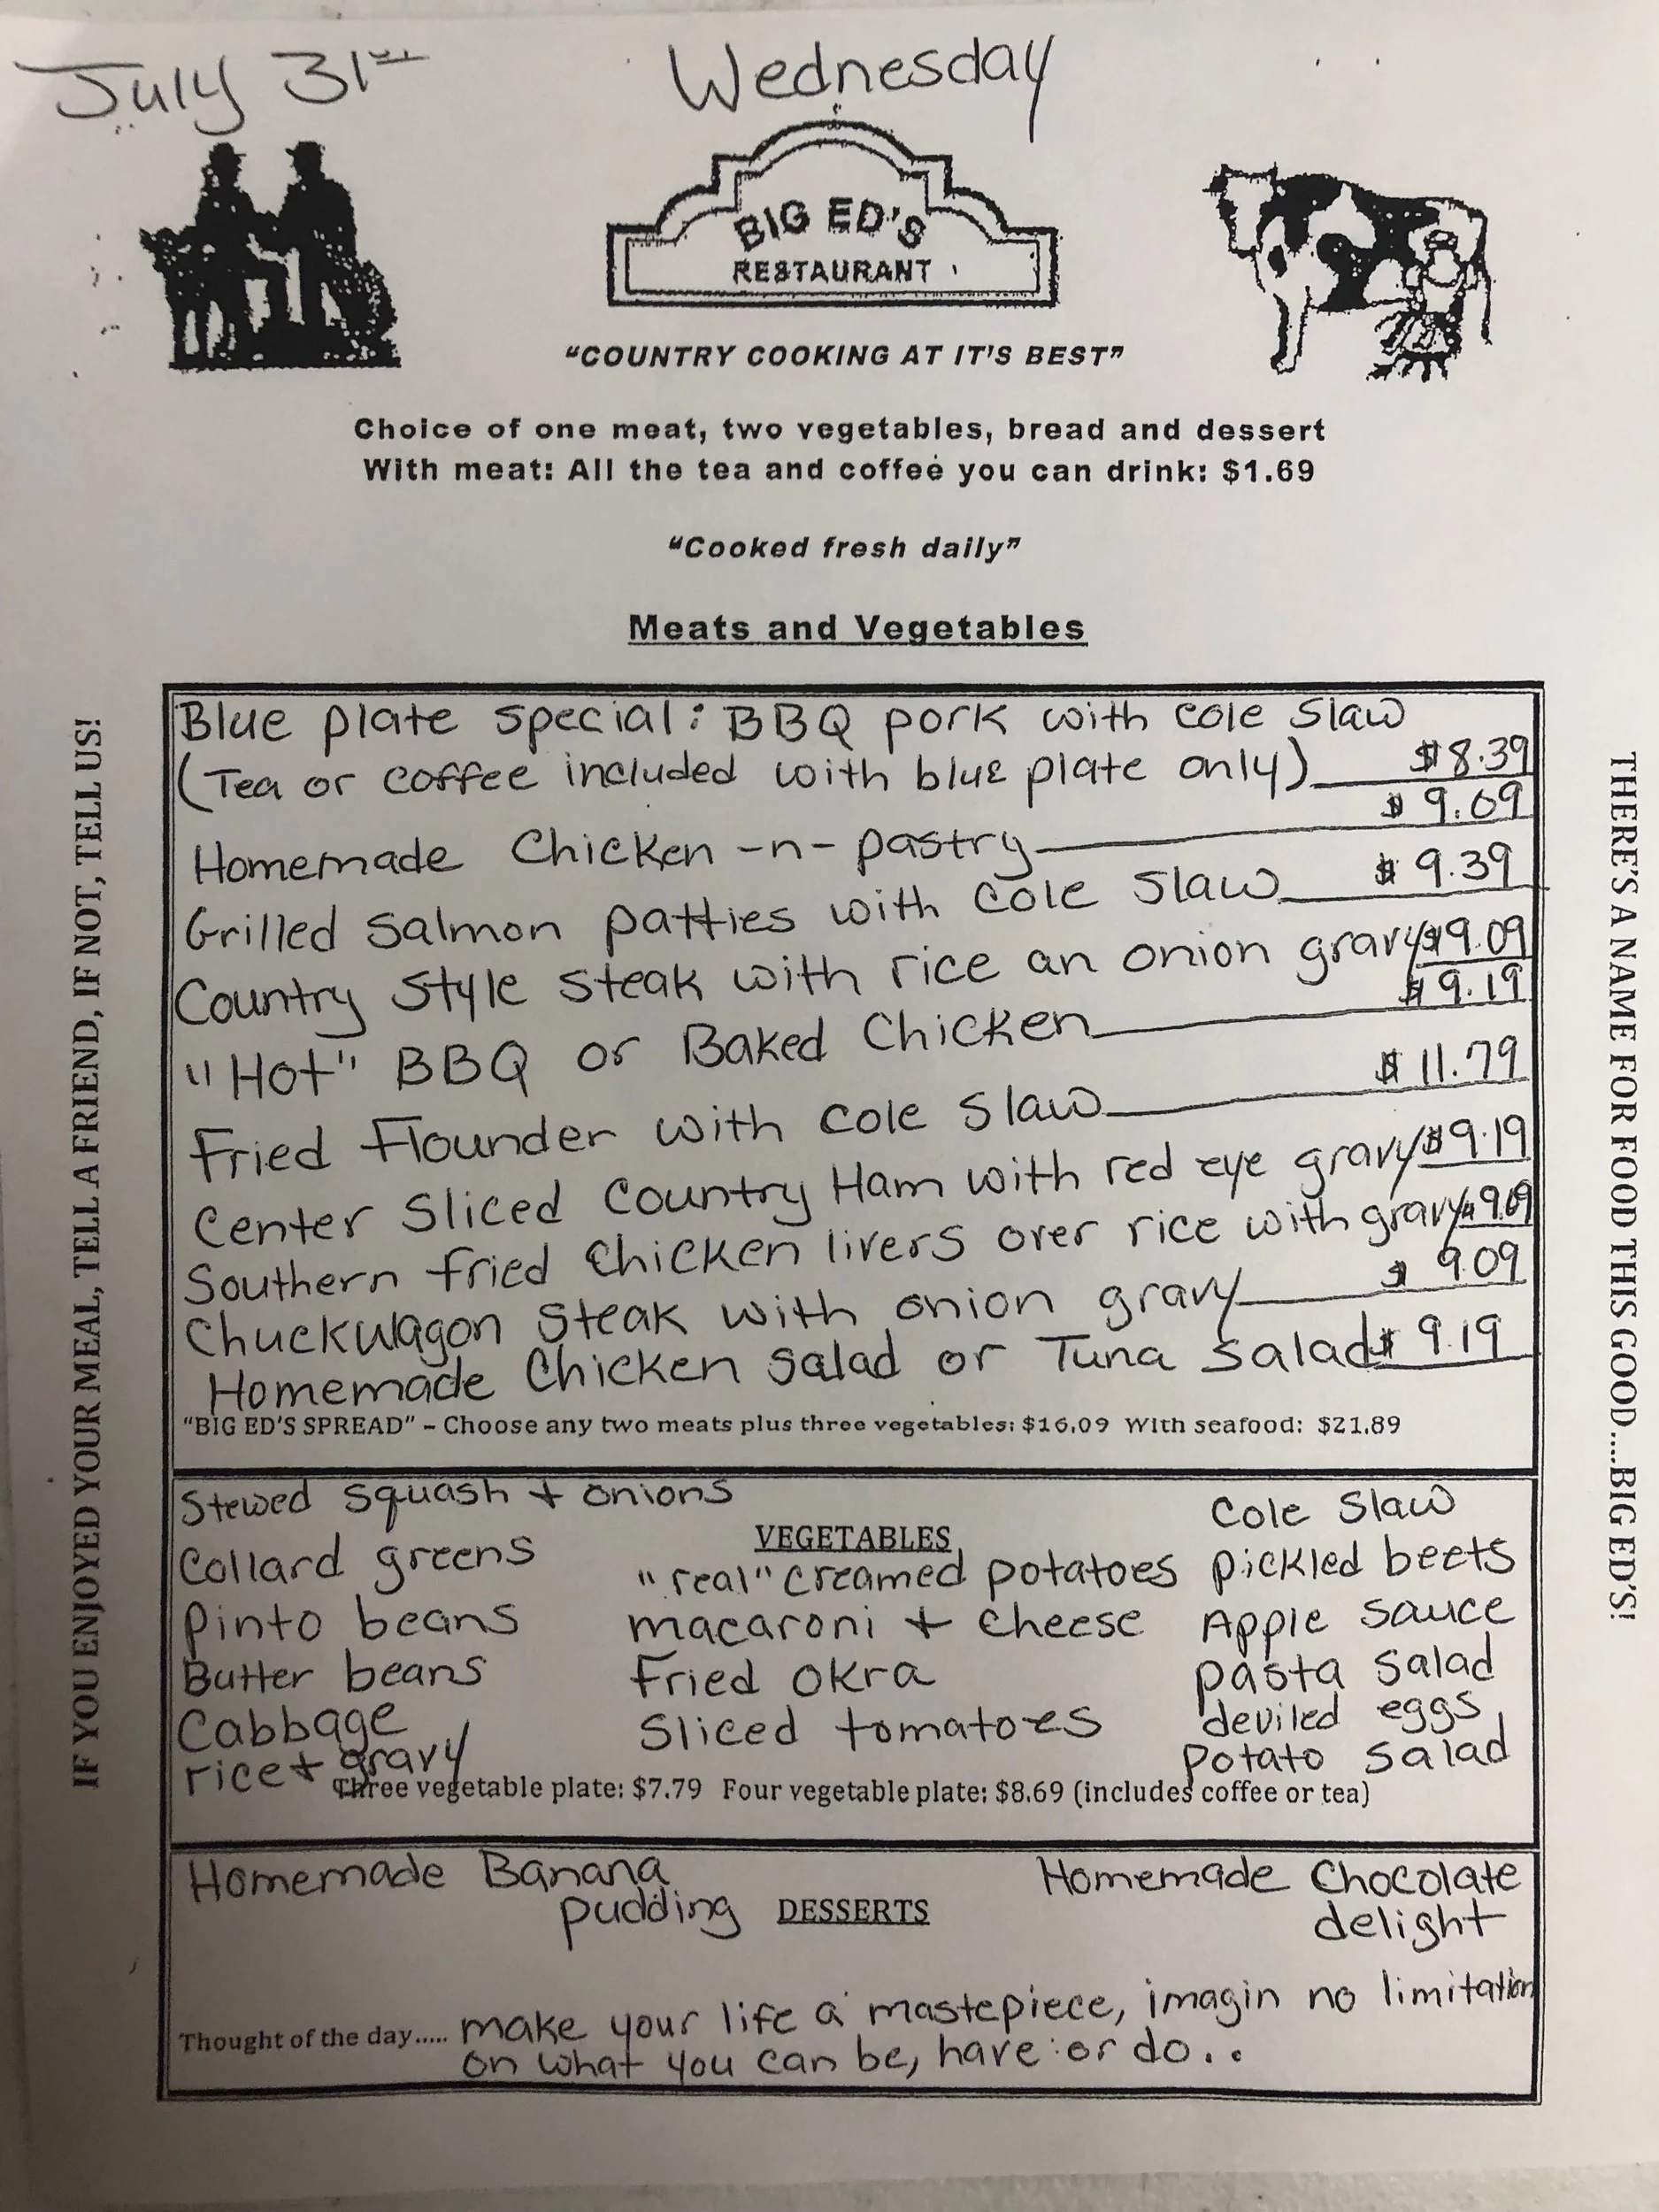 July 31st Wednesday
BIG ED'S
RESTAURANT
"COUNTRY COOKING AT IT'S BEST"
Choice of one meat, two vegetables, bread and dessert
With meat: All the tea and coffee you can drink: $1.69
"Cooked fresh daily"
Meats and Vegetables
Blue plate special: BBQ pork with cole slaw
(Tea or coffee included with blue plate only) $8.39
Homemade Chicken -n- pastry $9.09
Grilled salmon patties with cole slaw $9.39
Country style steak with rice an onion gravy $9.09
"Hot" BBQ or Baked Chicken $9.19
Fried flounder with cole slaw $11.79
Center sliced country Ham with red eye gravy $9.19
Southern fried chicken livers over rice with gravy $9.09
Chuckwagon steak with onion gravy $9.09
Homemade Chicken salad or Tuna salad $9.19
"BIG ED'S SPREAD" – Choose any two meats plus three vegetables: $16.09 With seafood: $21.89
VEGETABLES
Stewed squash + onions
Collard greens
pinto beans
Butter beans
Cabbage
rice + gravy
"real" creamed potatoes
macaroni + cheese
Fried okra
Sliced tomatoes
Cole Slaw
pickled beets
Apple sauce
pasta salad
deviled eggs
potato salad
Three vegetable plate: $7.79 Four vegetable plate: $8.69 (includes coffee or tea)
DESSERTS
Homemade Banana
pudding
Homemade Chocolate
delight
Thought of the day..... make your life a mastepiece, imagin no limitation
on what you can be, have or do..
IF YOU ENJOYED YOUR MEAL, TELL A FRIEND, IF NOT, TELL US!
THERE'S A NAME FOR FOOD THIS GOOD....BIG ED'S!